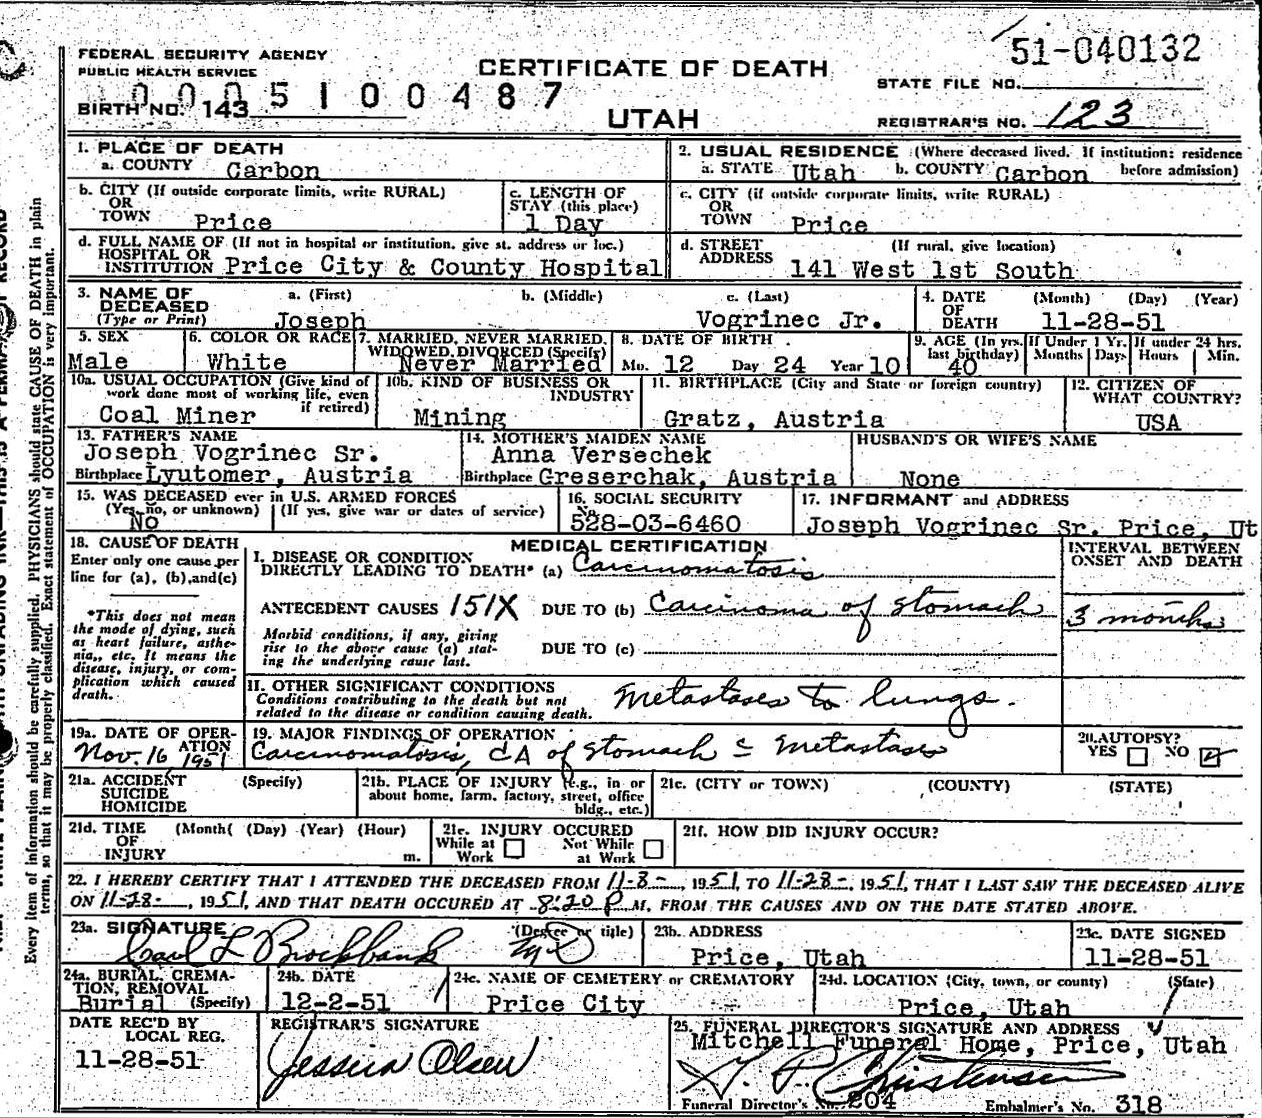 51-040132
FEDERAL SECURITY AGENCY
PUBLIC HEALTH SERVICE
CERTIFICATE OF DEATH
STATE FILE NO.
0005100487
BIRTH NO. 143
UTAH
REGISTRAR'S NO. 123
1. PLACE OF DEATH
a. COUNTY Carbon
2. USUAL RESIDENCE (Where deceased lived. If institution: residence before admission)
a. STATE Utah b. COUNTY Carbon
b. CITY (If outside corporate limits, write RURAL)
OR
TOWN Price
c. LENGTH OF
STAY (this place)
1 Day
c. CITY (if outside corporate limits, write RURAL)
OR
TOWN Price
d. FULL NAME OF (If not in hospital or institution, give st. address or loc.)
HOSPITAL OR
INSTITUTION Price City & County Hospital
d. STREET (If rural, give location)
ADDRESS
141 West 1st South
3. NAME OF
DECEASED
(Type or Print)
a. (First) b. (Middle) c. (Last)
Joseph Vogrinec Jr.
4. DATE (Month) (Day) (Year)
OF
DEATH 11-28-51
5. SEX
Male
6. COLOR OR RACE
White
7. MARRIED, NEVER MARRIED,
WIDOWED, DIVORCED (Specify)
Never Married
8. DATE OF BIRTH
Mo. 12 Day 24 Year 10
9. AGE (In yrs.
last birthday)
40
If Under 1 Yr.
Months Days
If under 24 hrs.
Hours Min.
10a. USUAL OCCUPATION (Give kind of
work done most of working life, even
if retired)
Coal Miner
10b. KIND OF BUSINESS OR
INDUSTRY
Mining
11. BIRTHPLACE (City and State or foreign country)
Gratz, Austria
12. CITIZEN OF
WHAT COUNTRY?
USA
13. FATHER'S NAME
Joseph Vogrinec Sr.
Birthplace Lyutomer, Austria
14. MOTHER'S MAIDEN NAME
Anna Versechek
Birthplace Greserchak, Austria
HUSBAND'S OR WIFE'S NAME
None
15. WAS DECEASED ever in U.S. ARMED FORCES
(Yes, no, or unknown) (If yes, give war or dates of service)
No
16. SOCIAL SECURITY
No.
528-03-6460
17. INFORMANT and ADDRESS
Joseph Vogrinec Sr. Price, Ut
18. CAUSE OF DEATH
Enter only one cause per
line for (a), (b), and (c)
*This does not mean
the mode of dying, such
as heart failure, asthe-
nia, etc. It means the
disease, injury, or com-
plication which caused
death.
MEDICAL CERTIFICATION
I. DISEASE OR CONDITION
DIRECTLY LEADING TO DEATH* (a) Carcinomatosis
ANTECEDENT CAUSES 151X DUE TO (b) Carcinoma of Stomach
Morbid conditions, if any, giving
rise to the above cause (a) stat-
ing the underlying cause last.
DUE TO (c)
INTERVAL BETWEEN
ONSET AND DEATH
3 months
II. OTHER SIGNIFICANT CONDITIONS
Conditions contributing to the death but not
related to the disease or condition causing death.
Metastases to lungs.
19a. DATE OF OPER-
ATION
Nov. 16, 1951
19. MAJOR FINDINGS OF OPERATION
Carcinomatosis, CA of Stomach c̄ Metastases
20. AUTOPSY?
YES NO
21a. ACCIDENT (Specify)
SUICIDE
HOMICIDE
21b. PLACE OF INJURY (e.g., in or
about home, farm, factory, street, office
bldg., etc.)
21c. (CITY OR TOWN) (COUNTY) (STATE)
21d. TIME (Month( (Day) (Year) (Hour)
OF
INJURY m.
21e. INJURY OCCURED
While at Work
Not While at Work
21f. HOW DID INJURY OCCUR?
22. I HEREBY CERTIFY THAT I ATTENDED THE DECEASED FROM 11-8-, 1951, TO 11-28-, 1951, THAT I LAST SAW THE DECEASED ALIVE
ON 11-28-, 1951, AND THAT DEATH OCCURED AT 8:20 P M, FROM THE CAUSES AND ON THE DATE STATED ABOVE.
23a. SIGNATURE (Degree or title)
Carl L Brockbank MD
23b. ADDRESS
Price, Utah
23c. DATE SIGNED
11-28-51
24a. BURIAL, CREMA-
TION, REMOVAL
Burial (Specify)
24b. DATE
12-2-51
24c. NAME OF CEMETERY or CREMATORY
Price City
24d. LOCATION (City, town, or county) (State)
Price, Utah
DATE REC'D BY
LOCAL REG.
11-28-51
REGISTRAR'S SIGNATURE
Jessica Olsen
25. FUNERAL DIRECTOR'S SIGNATURE AND ADDRESS
Mitchell Funeral Home, Price, Utah
Christensen
Funeral Director's No. 204 Embalmer's No. 318
Every item of information should be carefully supplied. PHYSICIANS should state CAUSE OF DEATH in plain
term, so that it may be properly classified. Exact statement of OCCUPATION is very important.